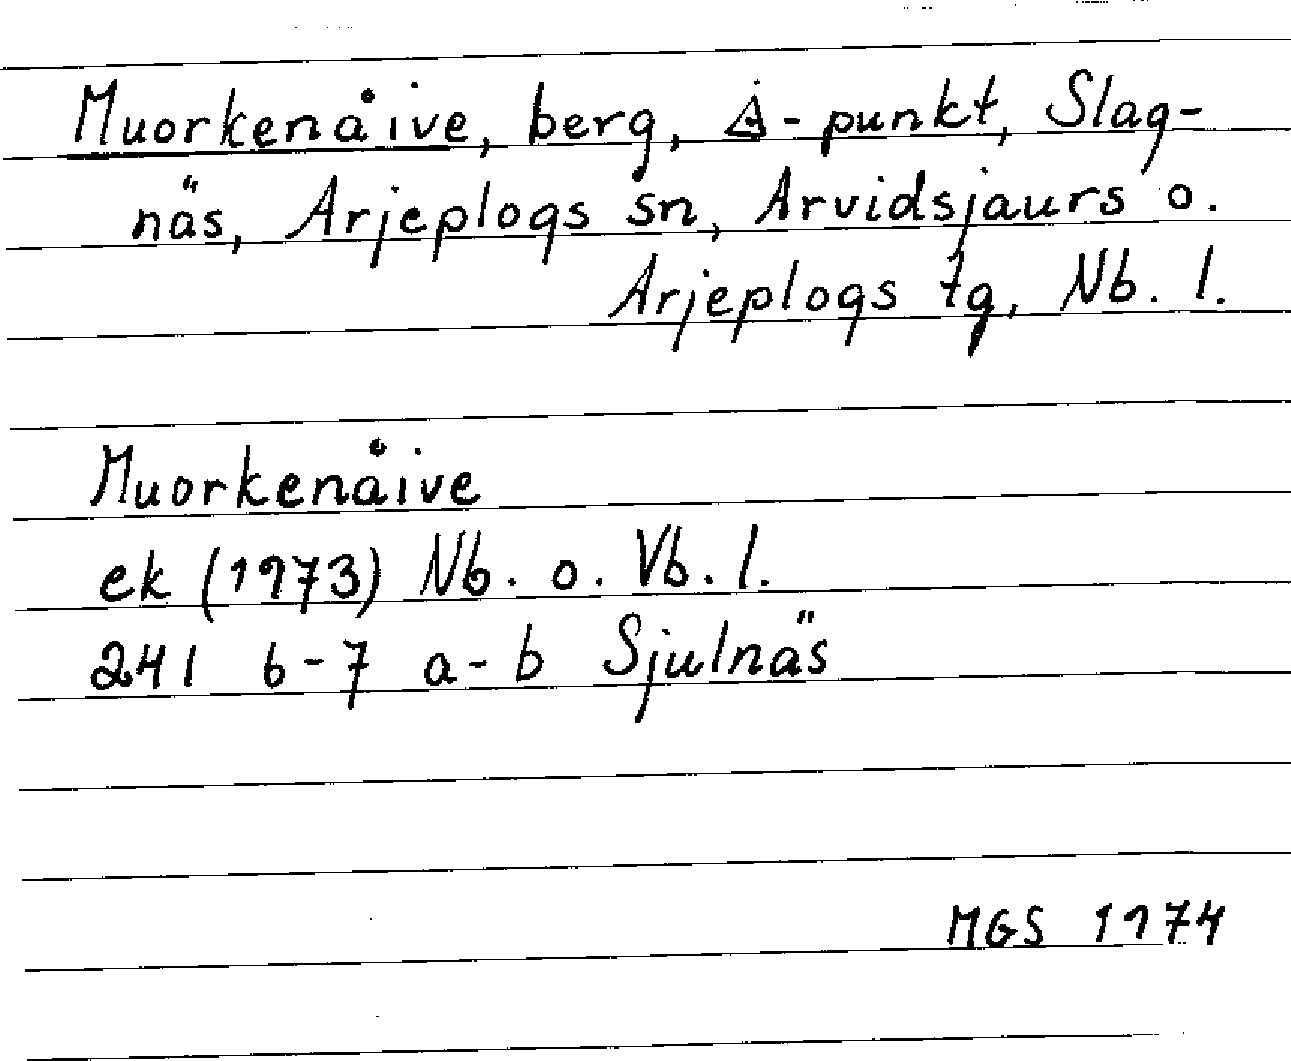 Muorkenåive, berg, △-punkt, Slag-
näs, Arjeplogs sn, Arvidsjaurs o.
Arjeplogs tg, Nb. l.
Muorkenåive
ek (1973) Nb. o. Vb. l.
24I 6-7 a-b Sjulnäs
MGS 1974